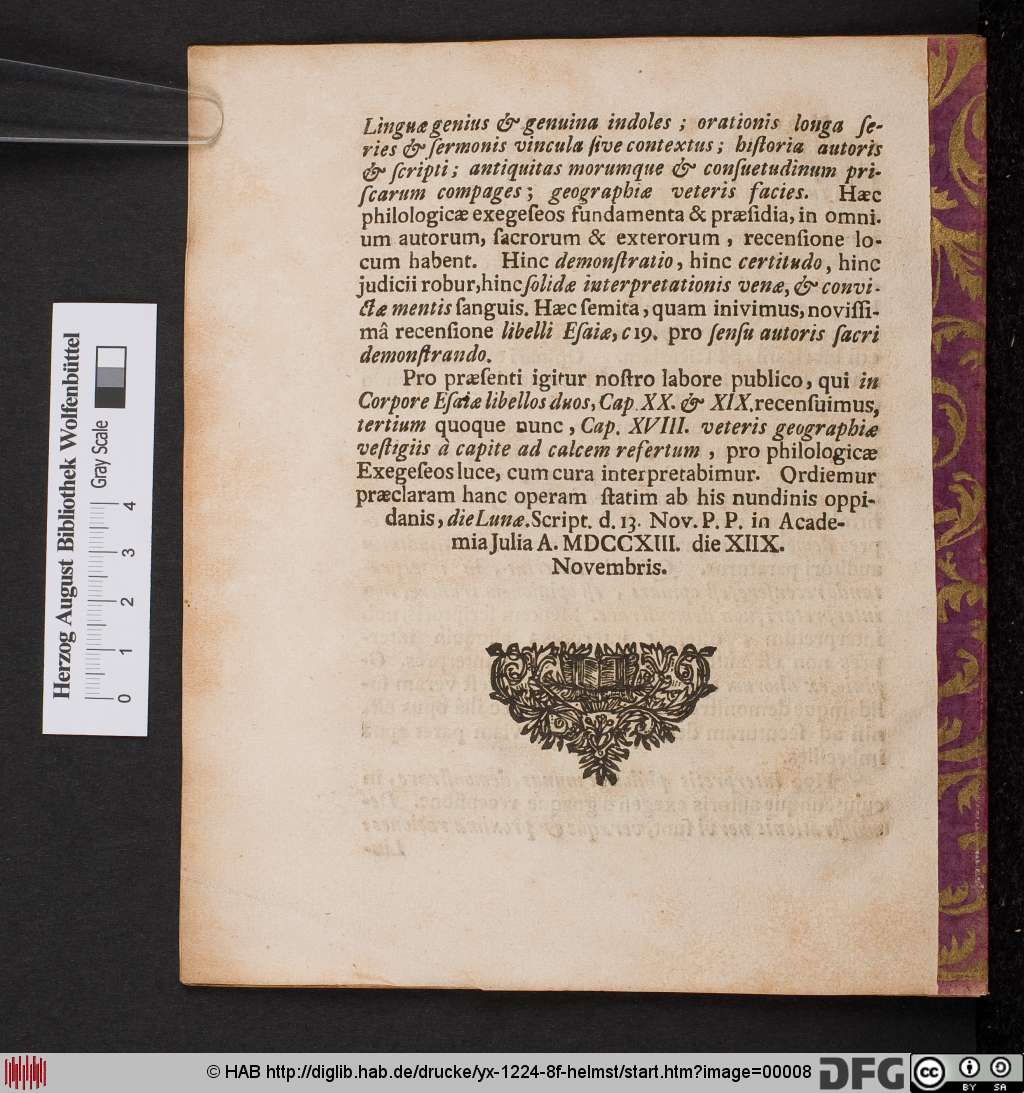 Linguæ genius & genuina indoles ; orationis longa ſe-
ries & ſermonis vincula ſive contextus ; hiſtoria autoris
& ſcripti ; antiquitas morumque & conſuetudinum pri-
ſcarum compages ; geographiæ veteris facies. Hæc
philologicæ exegeſeos fundamenta & præſidia, in omni.
um autorum, ſacrorum & exterorum , recenſione lo-
cum habent. Hinc demonſtratio, hinc certitudo, hinc
judicii robur, hinc ſolidæ interpretationis venæ, & convi-
ctæ mentis ſanguis. Hæc ſemita, quam inivimus, noviſſi-
mâ recenſione libelli Eſaiæ, c 19. pro ſenſu autoris ſacri
demonſtrando.
Pro præſenti igitur noſtro labore publico, qui in
Corpore Eſaiæ libellos duos, Cap. XX. & XIX. recenſuimus,
tertium quoque nunc, Cap. XVIII. veteris geographiæ
veſtigiis à capite ad calcem refertum , pro philologicæ
Exegeſeos luce, cum cura interpretabimur. Ordiemur
præclaram hanc operam ſtatim ab his nundinis oppi-
danis, die Lunæ. Script. d. 13. Nov. P. P. in Acade-
mia Julia A. MDCCXIII. die XIIX.
Novembris.
Herzog August Bibliothek Wolfenbüttel
Gray Scale
0 1 2 3 4
© HAB http://diglib.hab.de/drucke/yx-1224-8f-helmst/start.htm?image=00008
DFG
cc BY SA